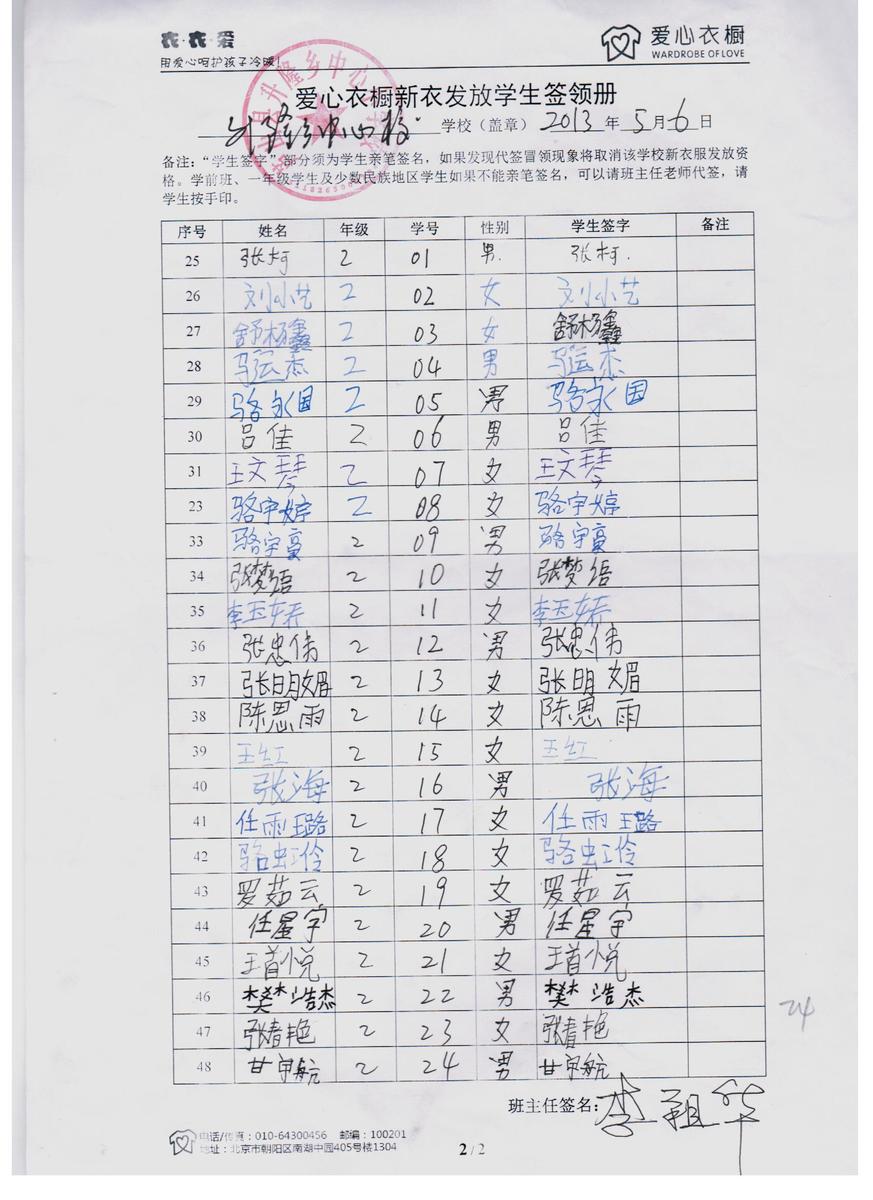 衣·衣·爱
用爱心呵护孩子冷暖!
爱心衣橱
WARDROBE OF LOVE
爱心衣橱新衣发放学生签领册
升隆乡中心校 学校（盖章） 2013 年 5 月 6 日
备注：“学生签字”部分须为学生亲笔签名，如果发现代签冒领现象将取消该学校新衣服发放资
格。学前班、一年级学生及少数民族地区学生如果不能亲笔签名，可以请班主任老师代签，请
学生按手印。
序号 姓名 年级 学号 性别 学生签字 备注
25 张柯 2 01 男 张柯
26 刘小艺 2 02 女 刘小艺
27 舒杨鑫 2 03 女 舒杨鑫
28 马云杰 2 04 男 马云杰
29 骆永国 2 05 男 骆永国
30 吕佳 2 06 男 吕佳
31 王文琴 2 07 女 王文琴
23 骆宇婷 2 08 女 骆宇婷
33 骆宇 2 09 男 骆宇
34 张梦语 2 10 女 张梦语
35 李玉娇 2 11 女 李玉娇
36 张忠伟 2 12 男 张忠伟
37 张明媚 2 13 女 张明媚
38 陈思雨 2 14 女 陈思雨
39 王红 2 15 女 王红
40 张海 2 16 男 张海
41 任雨璐 2 17 女 任雨璐
42 骆虹伶 2 18 女 骆虹伶
43 罗茹云 2 19 女 罗茹云
44 任星宇 2 20 男 任星宇
45 王首悦 2 21 女 王首悦
46 樊浩杰 2 22 男 樊浩杰
47 张春艳 2 23 女 张春艳
48 甘宇航 2 24 男 甘宇航
24
班主任签名：李祖华
电话/传真：010-64300456 邮编：100201
地址：北京市朝阳区南湖中园405号楼1304
2 / 2